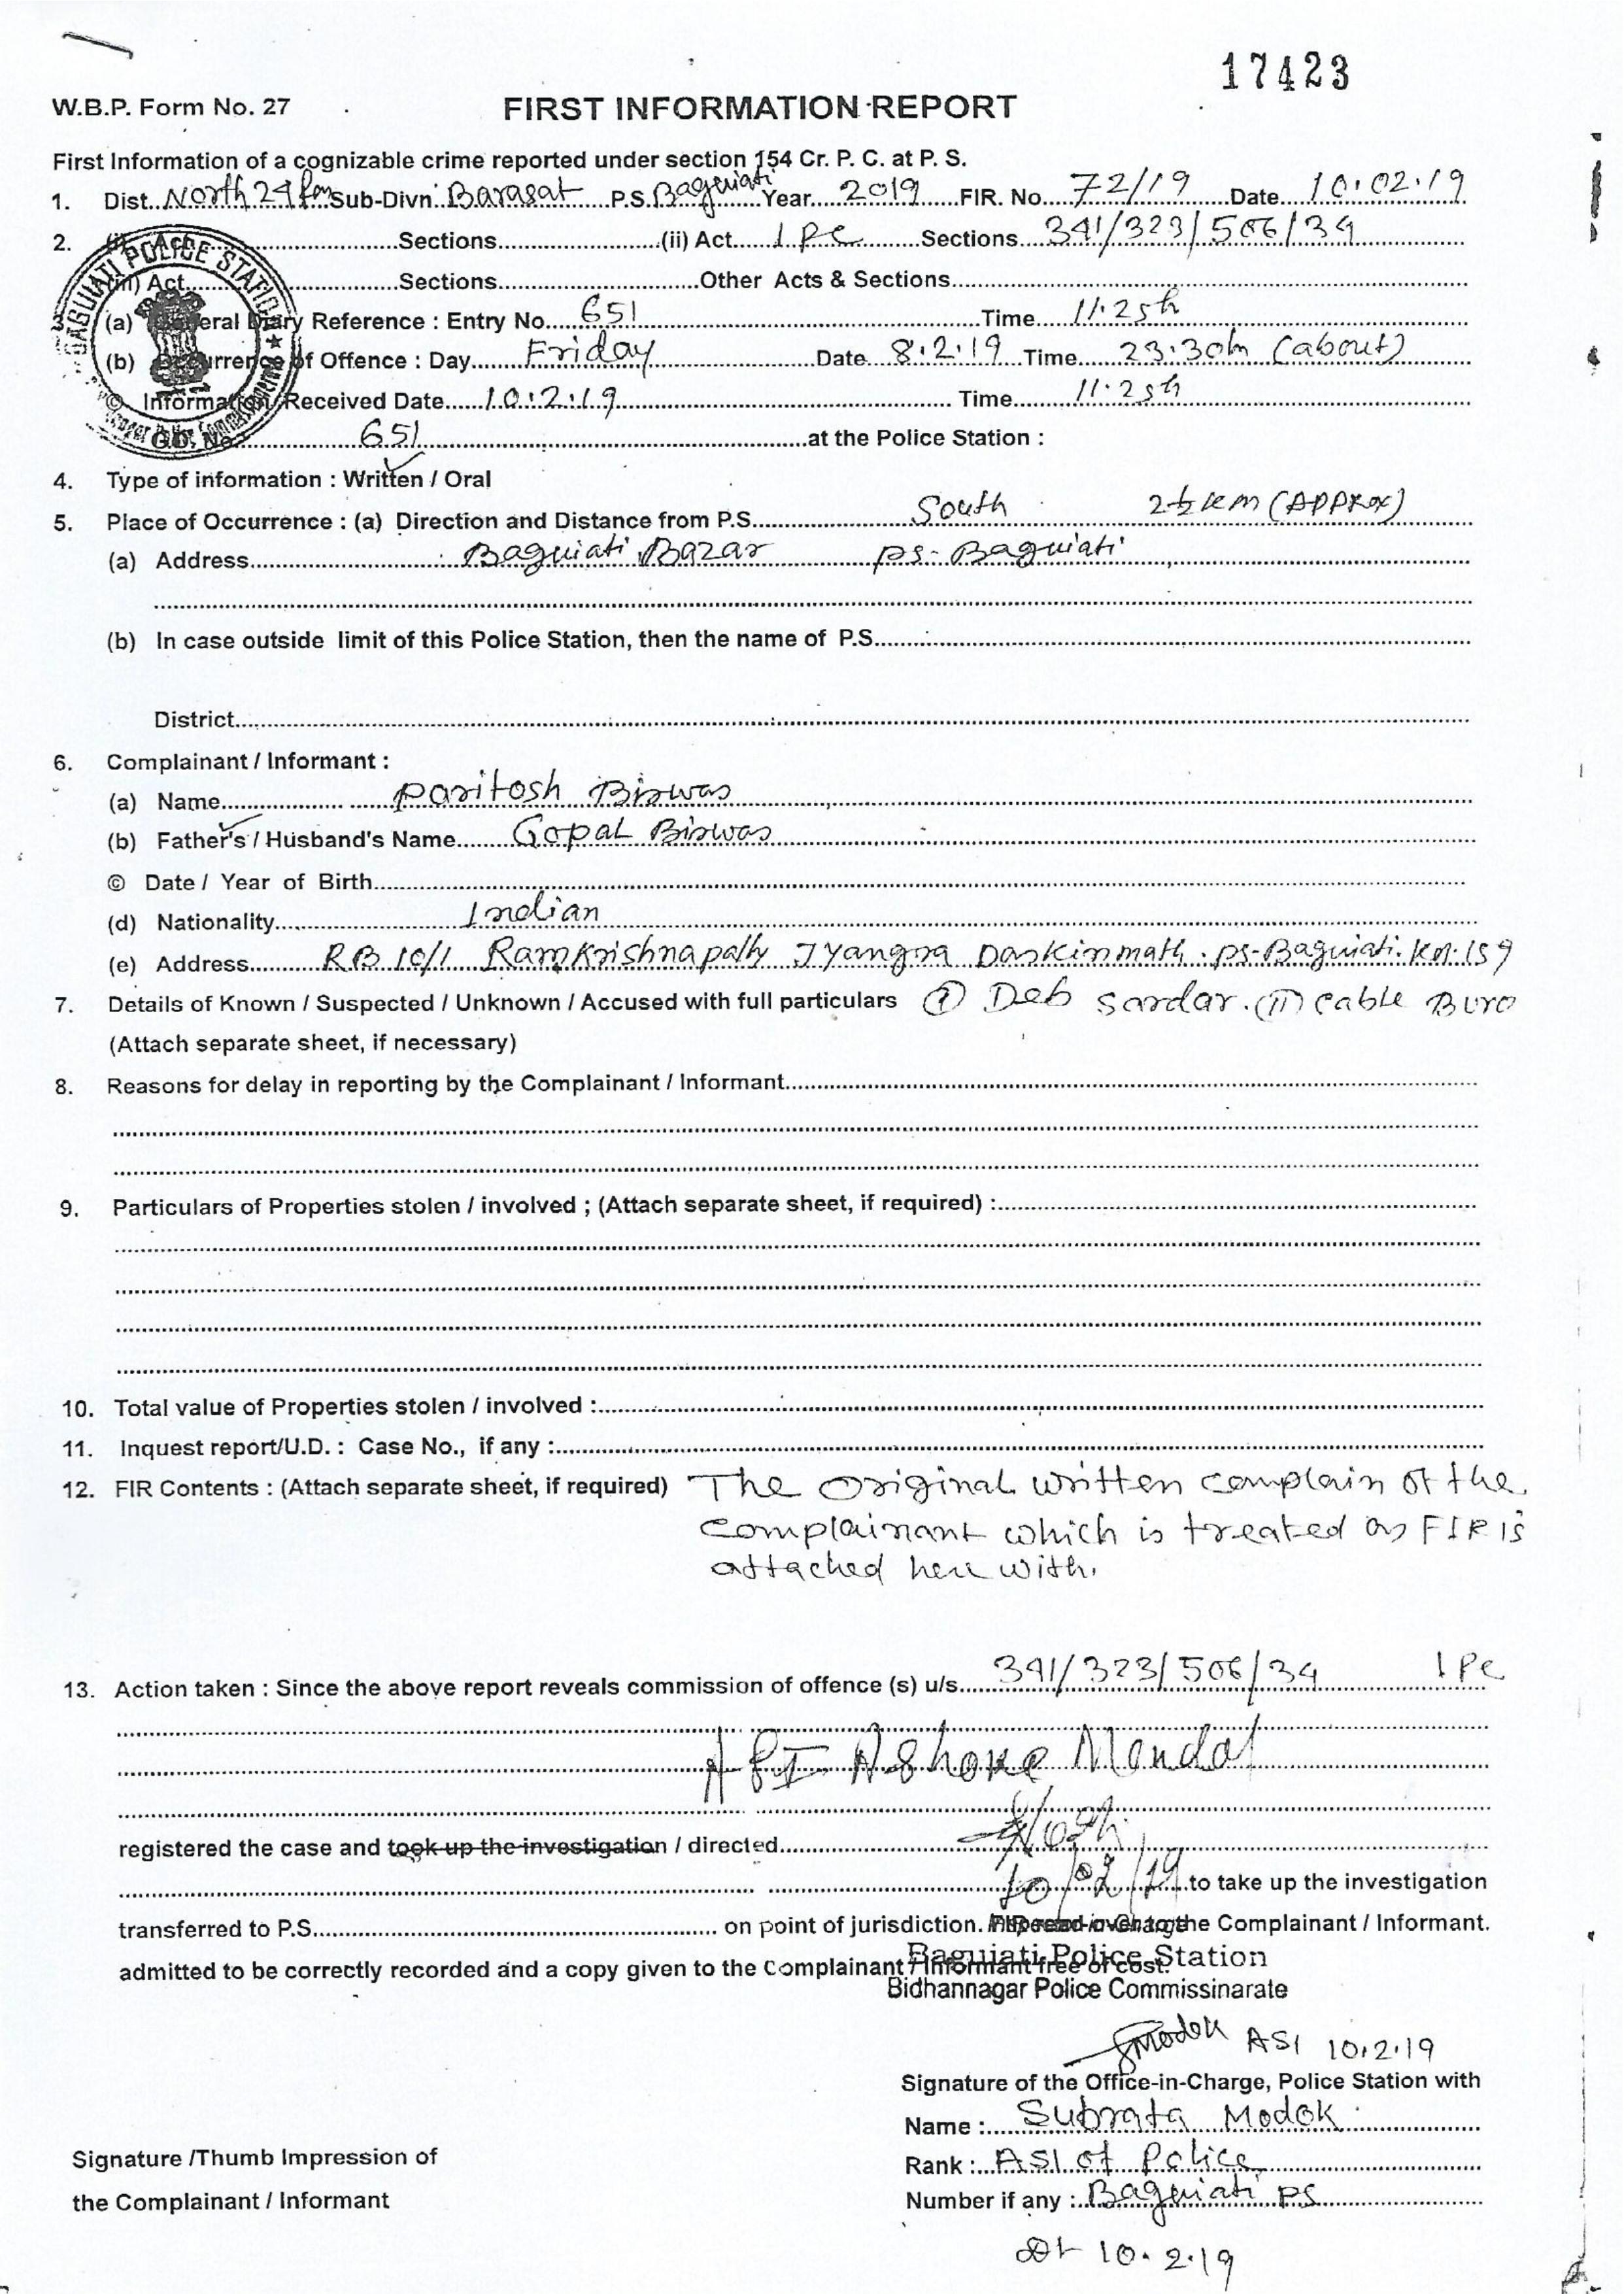 17423
W.B.P. Form No. 27 FIRST INFORMATION REPORT
First Information of a cognizable crime reported under section 154 Cr. P. C. at P. S.
1. Dist. North 24 Sub-Divn Barasat P.S. Baguiati Year 2019 FIR. No. 72/19 Date 10.02.19
2. (i) Act Sections (ii) Act IPC Sections 341/323/506/34
(iii) Act Sections Other Acts & Sections
3. (a) General Diary Reference : Entry No. 651 Time 11:25h
(b) Occurrence of Offence : Day Friday Date 8.2.19 Time 23:30h (about)
© Information Received Date 10.2.19 Time 11:25h
GD. No. 651 at the Police Station :
BAGUIATI POLICE STATION
4. Type of information : Written / Oral
5. Place of Occurrence : (a) Direction and Distance from P.S. South 2½ KM (APPROX)
(a) Address Baguiati Bazar PS- Baguiati
(b) In case outside limit of this Police Station, then the name of P.S.
District
6. Complainant / Informant :
(a) Name Paritosh Biswas
(b) Father's / Husband's Name Gopal Biswas
© Date / Year of Birth
(d) Nationality Indian
(e) Address RB 10/1 Ramkrishnapally Jyangra Daskinmath. PS-Baguiati. Kol. 159
7. Details of Known / Suspected / Unknown / Accused with full particulars (I) Deb Sardar. (II) Cable Buro
(Attach separate sheet, if necessary)
8. Reasons for delay in reporting by the Complainant / Informant
9. Particulars of Properties stolen / involved ; (Attach separate sheet, if required) :
10. Total value of Properties stolen / involved :
11. Inquest report/U.D. : Case No., if any :
12. FIR Contents : (Attach separate sheet, if required) The Original written complain of the
complainant which is treated as FIR is
attached here with.
13. Action taken : Since the above report reveals commission of offence (s) u/s 341/323/506/34 IPC
ASI Ashoke Mondal
registered the case and took up the investigation / directed
10/02/19 to take up the investigation
transferred to P.S. on point of jurisdiction. FIR read over to the Complainant / Informant.
admitted to be correctly recorded and a copy given to the Complainant / Informant free of cost.
Inspector-in-Charge
Baguiati Police Station
Bidhannagar Police Commissinarate
SModok ASI 10.2.19
Signature of the Office-in-Charge, Police Station with
Name : Subrata Modok
Rank : ASI of Police
Number if any : Baguiati PS
Dt 10.2.19
Signature /Thumb Impression of
the Complainant / Informant